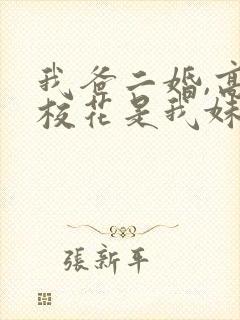 我爸二婚,高
校花是我妹
張新平